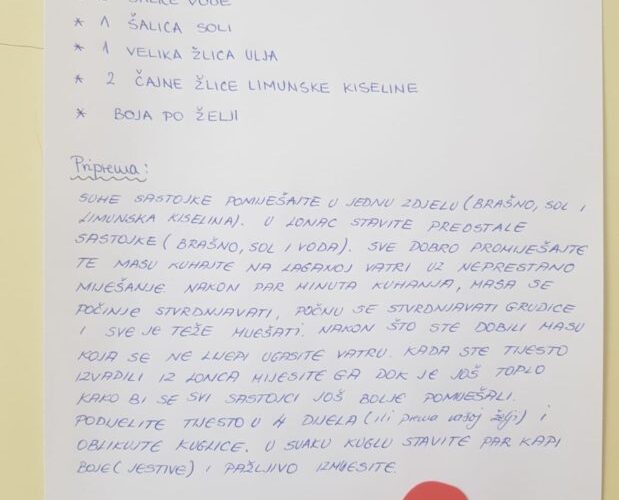 ŠALICE VODE
* 1 ŠALICA SOLI
* 1 VELIKA ŽLICA ULJA
* 2 ČAJNE ŽLICE LIMUNSKE KISELINE
* BOJA PO ŽELJI
Priprema:
SUHE SASTOJKE POMIJEŠAJTE U JEDNU ZDJELU (BRAŠNO, SOL I
LIMUNSKA KISELINA). U LONAC STAVITE PREOSTALE
SASTOJKE (BRAŠNO, SOL I VODA). SVE DOBRO PROMIJEŠAJTE
TE MASU KUHAJTE NA LAGANOJ VATRI UZ NEPRESTANO
MIJEŠANJE. NAKON PAR MINUTA KUHANJA, MASA SE
POČINJE STVRDNJAVATI, POČNU SE STVRDNJAVATI GRUDICE
I SVE JE TEŽE MIJEŠATI. NAKON ŠTO STE DOBILI MASU
KOJA SE NE LIJEPI UGASITE VATRU. KADA STE TIJESTO
IZVADILI IZ LONCA MIJESITE GA DOK JE JOŠ TOPLO
KAKO BI SE SVI SASTOJCI JOŠ BOLJE POMIJEŠALI.
PODIJELITE TIJESTO U 4 DIJELA (ili prema vašoj želji) I
OBLIKUJTE KUGLICE. U SVAKU KUGLU STAVITE PAR KAPI
BOJE (JESTIVE) I PAŽLJIVO IZMIJESITE.